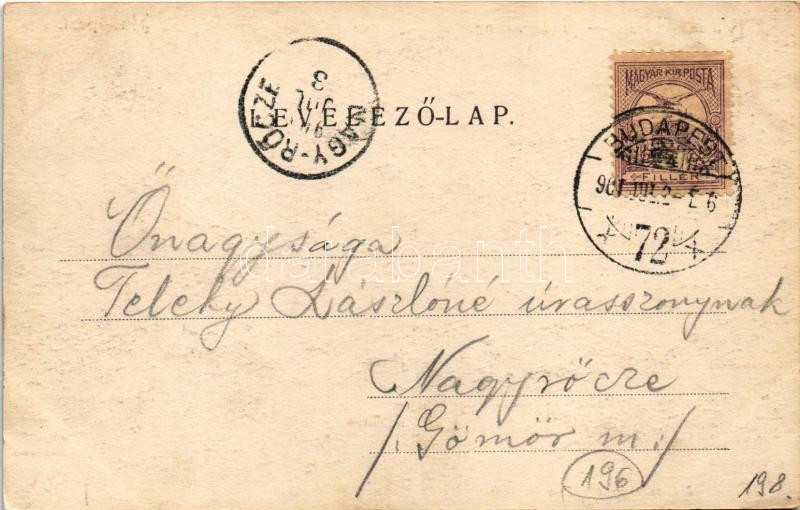 LEVELEZŐ-LAP.
NAGY-RŐCZE
JUL 3
MAGYAR KIR. POSTA
FILLÉR
BUDAPEST
901 JUL. 2
6
72
darabanth
Őnagysága
Teleky Lászlóné úrasszonynak
Nagyrőcze
/: Gömör m :/
196
198.